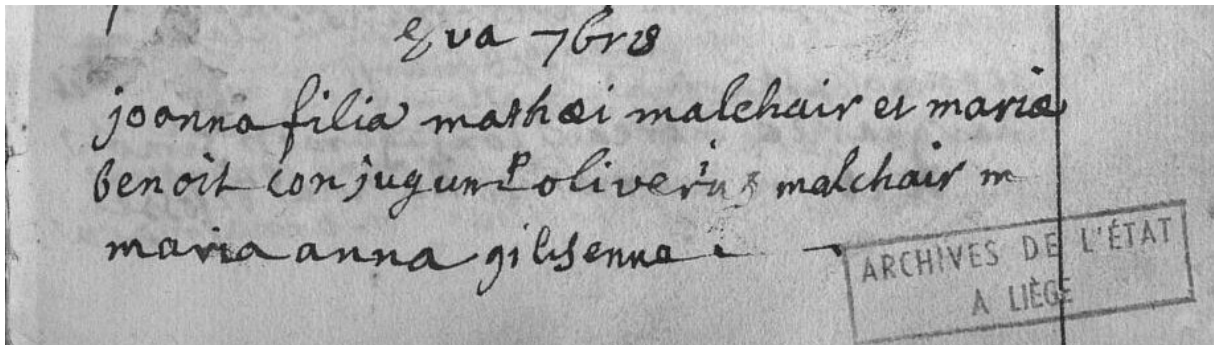 va 7bris
joanna filia mathæi malchair et mariæ
benoit conjugum p oliverius malchair m
maria anna gilisenne
ARCHIVES DE L'ÉTAT
A LIÈGE